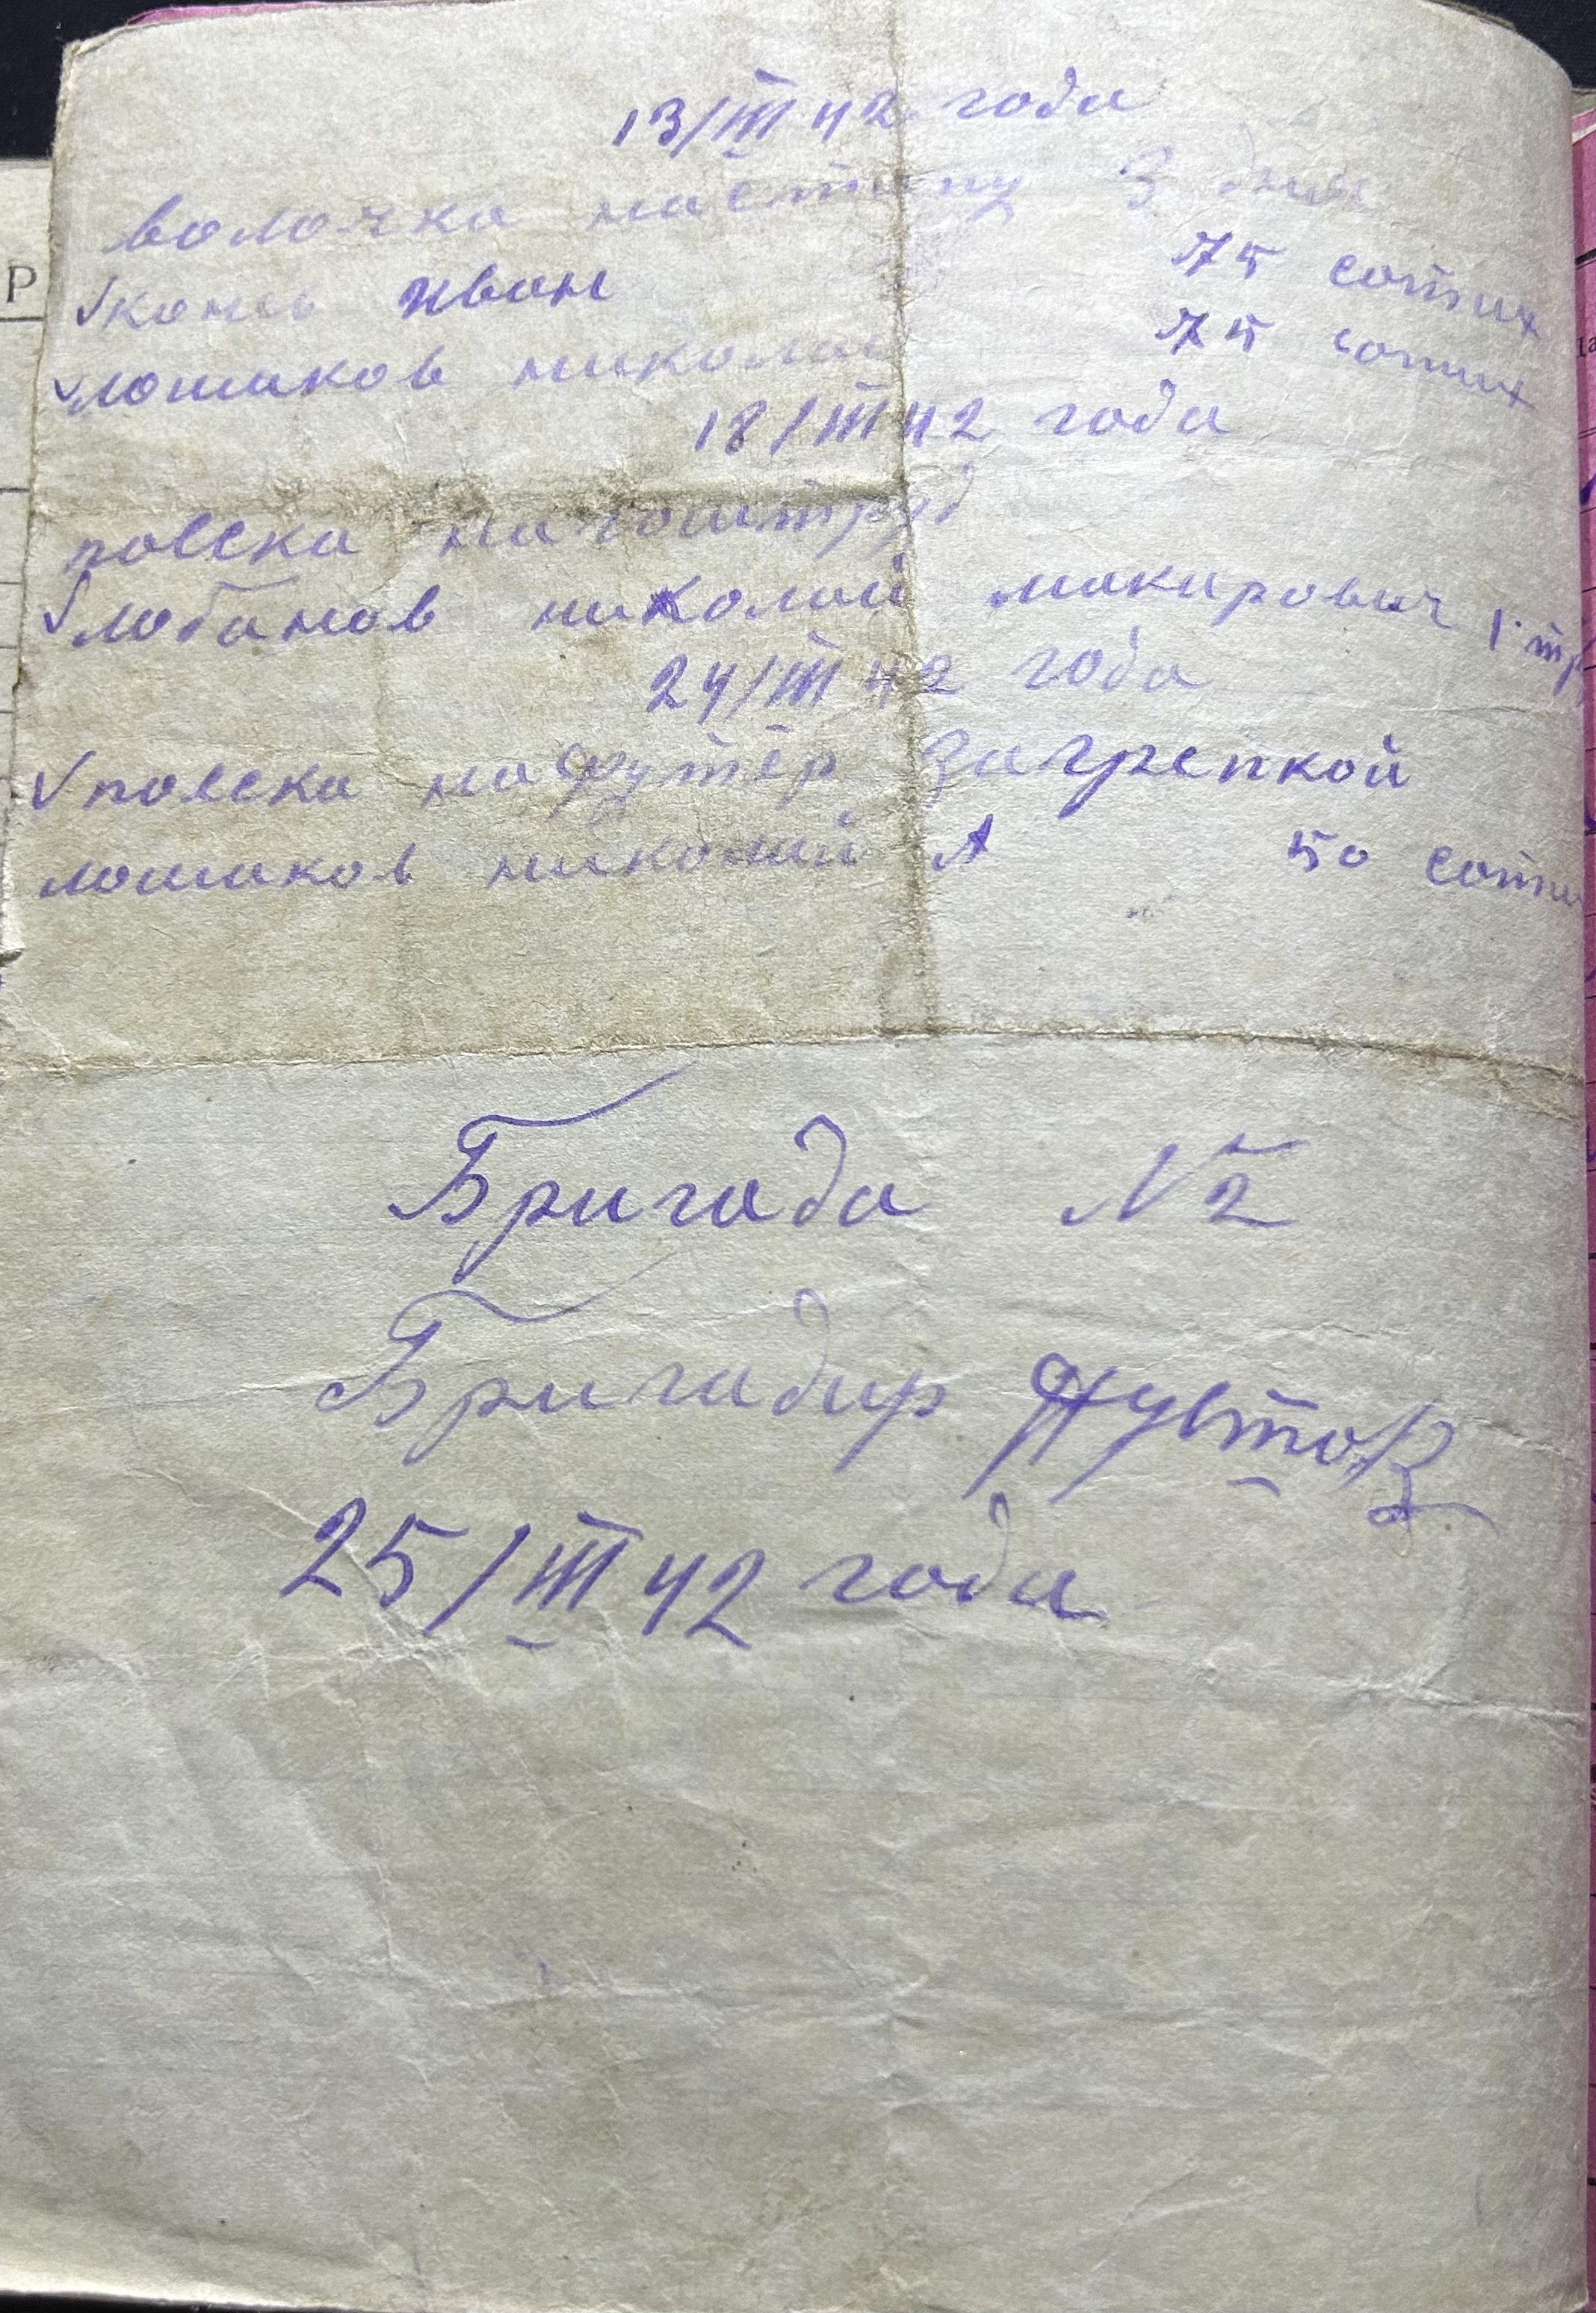 13/III 42 года
волочка настану 3 дня
конь иван 75 сотих
лошаков николай 75 сотих
18/III 42 года
поеска
лобанов николай макарович 1 тр
24/III 42 года
поеска нафутер загрепкой
лошаков николай А 50 соти
Бригада № 2
Бригадир
25/III 42 года
Р